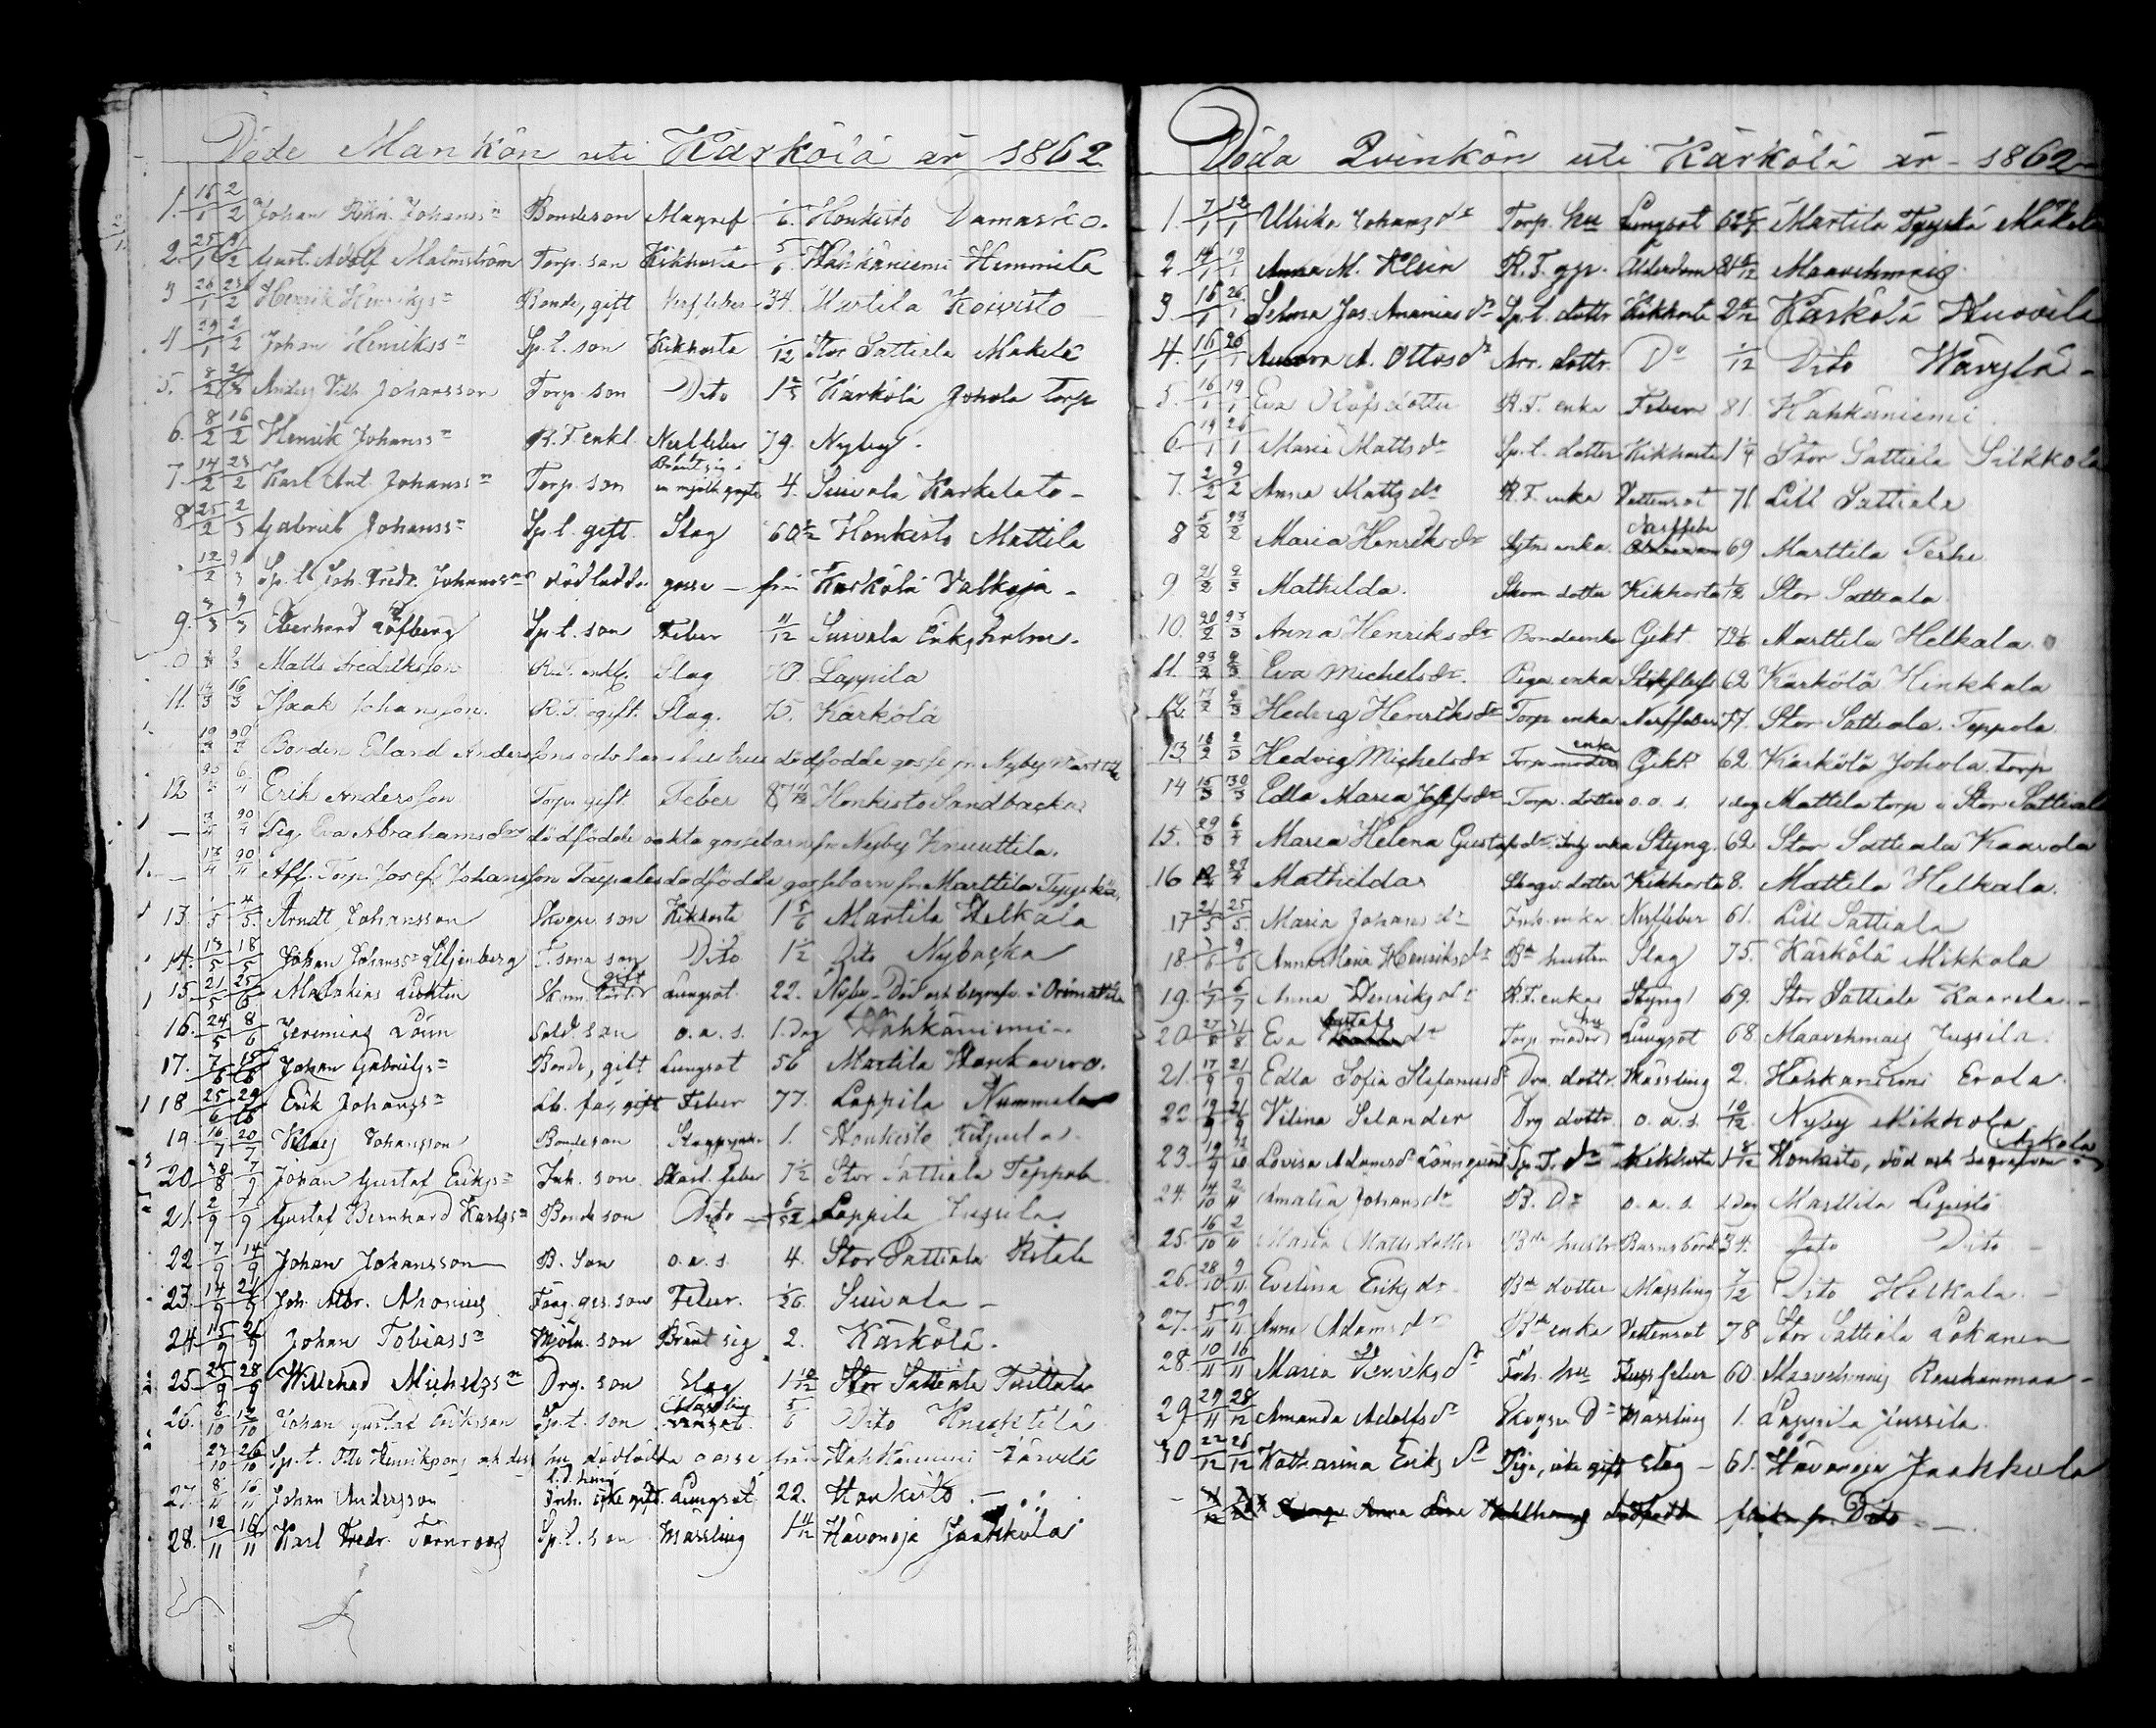 Döde Mankön uti Kärkölä år 1862
1. 16/1 2/2 Johan Johanss:n Bondeson Magref 1/6. Honkisto Damasko.
2. 25/1 Gust. Adolf Malmström Torp. son Kikhosta 5/6. Hähkäniemi Hemmilä
3 26/1 23/2 Henrik Henrikss:n Bonde, gift Nerffeber 34. Martila Koivisto
4 29/1 2/2 Johan Henrikss:n Sp.l. son Kikhosta 1/12 Stor Sattiala Mäkelä
5. 8/2 Anders Vilh. Johansson Torp. son Dito Kärkölä Johola torp
6. 8/2 16/2 Henrik Johanss:n R.F. enkl. Nerffeber 79. Nyby.
7. 14/2 23/2 Karl Ant. Johanss:n Torp. son Bränt sig i en mjölk gryta 4. Suivala Karkelato -
8 25/2 2/3 Gabriel Johanss:n Sp.l. gift. Slag 60 1/2 Honkisto Mattila
12/2 9/3 Sp.l. Joh. Fredr. Johanss:ns dödfödde gosse — från Kärkölä Valkoja -
9. 9/3 Eberhard Löfberg Sp.l. son Feber 11/12 Suivala Eriksholm.
0 Matts Fredriksson R.F. enkl. Slag 70. Lappila
11. 14/3 16/3 Isaak Johansson. R.F. ogift. Slag. 75. Kärkölä
19/3 30/3 Bonden Eland Anderssons och hans hustrus dödfödde gosse fr. Nyby Marttila
12 6/4 Erik Andersson Torp. gift. Feber 87 Honkisto Sandbacka
— 20/4 Pig. Eva Abrahamsdrs dödfödde oäkta gossebarn fr. Nyby Knuuttila.
1. — 17/4 20/4 Afl. Torp. Josef Johansson Taipales dödfödde gossebarn fr. Marttila Tyyskä
13. 1/5 4/5. Arndt Johansson Skogv. son Kikhosta 1 5/6 Martila Helkala
14. 13/5 18/5 Johan Johanss:n Liljenberg T. sona son Dito 1 1/2 Dito Nybacka
15. 21/5 25/6 Malakias Lukten Skom. gift Lungsot. 22. Nyby - Död och begrafv. i Orimattila
16. 24/5 8/6 Jeremias Lönn Sold. son o.a.s. 1. Dag Hähkäniemi -
17. 7/6 15/6 Johan Gabrielss:n Bonde, gift Lungsot 56 Martila Hankavero.
18 25/6 29/6 Erik Johanss:n Lb. far, gift Feber 77. Lappila Nummela
19. 16/7 20/7 Klas Johansson Bondeson 1. Honkisto Filpula.
20. 30/8 7/9 Johan Gustaf Erikss:n Inh. son Skarl. feber 7 1/2 Stor Sattiala Teppola
21. 2/9 7/9 Gustaf Bernhard Karlss:n Bonde son Dito — 6/52 Lappila Jussila
22 7/9 14/9 Johan Johansson B. Son o.a.s. 4. Stor Sattiala Ristola
23. 14/9 21/9 Joh. Albr. Ahonius Färg. ges. son Feber. 1/26. Suivala —
24 15/9 21/9 Johan Tobiass:n Mjöln. son Bränt sig 2. Kärkölä.
25 25/9 28/9 Willehad Michelss:n Drg. son Slag 1 10/12 Stor Sattiala Tuittula
26. 6/10 12/10 Johan Gustaf Eriksson Sp.l. son Mässling 5/6 Dito Knuutila
27/10 26/10 Sp.l. Otto Henrikssons och dess hu dödfödda gosse från Hähkäniemi Järvelä
27. 8/11 16/11 Johan Andersson Inh. icke gift Lungsot 22. Honkisto. —
28. 12/11 16/11 Karl Fredr. Törnroos Sp.l. son Mässling 1 11/12 Hävonoja Jaakkola
Döda Qvinkön uti Kärkölä år - 1862 -
1. 7/1 12/1 Ulrika Johansdr Torp. hu Lungsot 62 Martila Tyyskä Mäkelä
2. 14/1 19/1 Anna M. Klein R.F. Ålderdom Maavehmais.
3. 16/1 26/1 Selma Jos. Ananiasdr Sp.l. dottr Kikhosta Kärkölä Huovila
4. 16/1 20/1 Aurora A. Ottosdr Arr. dottr. Do 1/12 Dito Wärylä -
5. 16/1 19/1 Eva Olofsdotter R.F. enka Feber 81. Hähkäniemi.
6. 19/1 26/1 Maria Mattsdr Sp.l. dotter Kikhosta 1 1/4 Stor Sattiala Silkkola
7. 2/2 9/2 Anna Mattsdr R.F. enka Vattensot 71. Lill Sattiala
8 5/2 23/2 Maria Henriksdr enka. Nerffeber 69 Marttila Perhe.
9 21/2 2/3 Mathilda. Skom. dotter Kikhosta 1/2 Stor Sattiala
10. 20/2 23/3 Anna Henriksdr Bondeenka Gikt 72 Marttila Helkala.
11. 23/2 2/3 Eva Michelsdr. Piga enka Stikfluss 62 Kärkölä Hinkkala
12. 17/2 2/3 Hedvig Henriksdr Torp enka Nerffeber 77. Stor Sattiala. Teppola
13 18/2 2/3 Hedvig Michelsdr Torp. enka Gikt 62. Kärkölä Johola torp
14 15/3 30/3 Edla Maria Josefsdr Torp. dotter o.a.s. 1 dag Mattila torp i Stor Sattiala
15. 29/3 6/4 Maria Helena Gustafsdr. Inh. enka Styng. 62 Stor Sattiala Kaarola
16 27/4 Mathilda Skogv. dotter Kikhosta 8. Mattila Helkala.
17 21/5 25/5. Maria Johansdr Inh. enka Nerffeber 61. Lill Sattiala
18. 9/6 Anna Maria Henriksdr Bde hustru Slag 75. Kärkölä Mikkola
19. 1/7 6/7 Anna Henriksdr R.F. enka Styng 69. Stor Sattiala Kaarola -
20 27/8 31/8 Eva Gustafsdr Torp. hu Lungsot 68. Maavehmais Jussila.
21. 17/9 21/9 Edla Sofia Stefanusdr Drg. dottr. Mässling 2. Hähkäniemi Erola.
22. 19/9 21/9 Vilina Selander Drg dottr. o.a.s. 10/12. Nyby Mikkola
23. 19/9 Lovisa Adamsdr Lönnqvist Sp.T. dr Kikhosta 1 8/12 Honkisto, död och begrafven i Askola
24. 14/10 2/11 Amalia Johansdr B. Dr o.a.s. 1 dag Marttila Lepistö
25. 16/10 2/11 Maria Mattsdotter Bde hustr. Barnsbörd 34. Dito Dito —
26. 28/10 9/11 Evelina Eriksdr Bde dotter Mässling 7/12 Dito Helkala. —
27. 5/11 9/11 Anna Adamsdr Bde enka Vattensot 78 Stor Sattiala Lokanen
28. 10/11 16/11 Maria Henriksdr Inh. hu feber 60. Maavehmais Rauhanmaa -
29 29/11 28/12 Amanda Adolfsdr Skogv. Dr Mässling 1. Lappila Jussila.
30 22/12 26/12 Katharina Eriksdr Pige, icke gift Slag — 61. Hävonoja Jaakkola